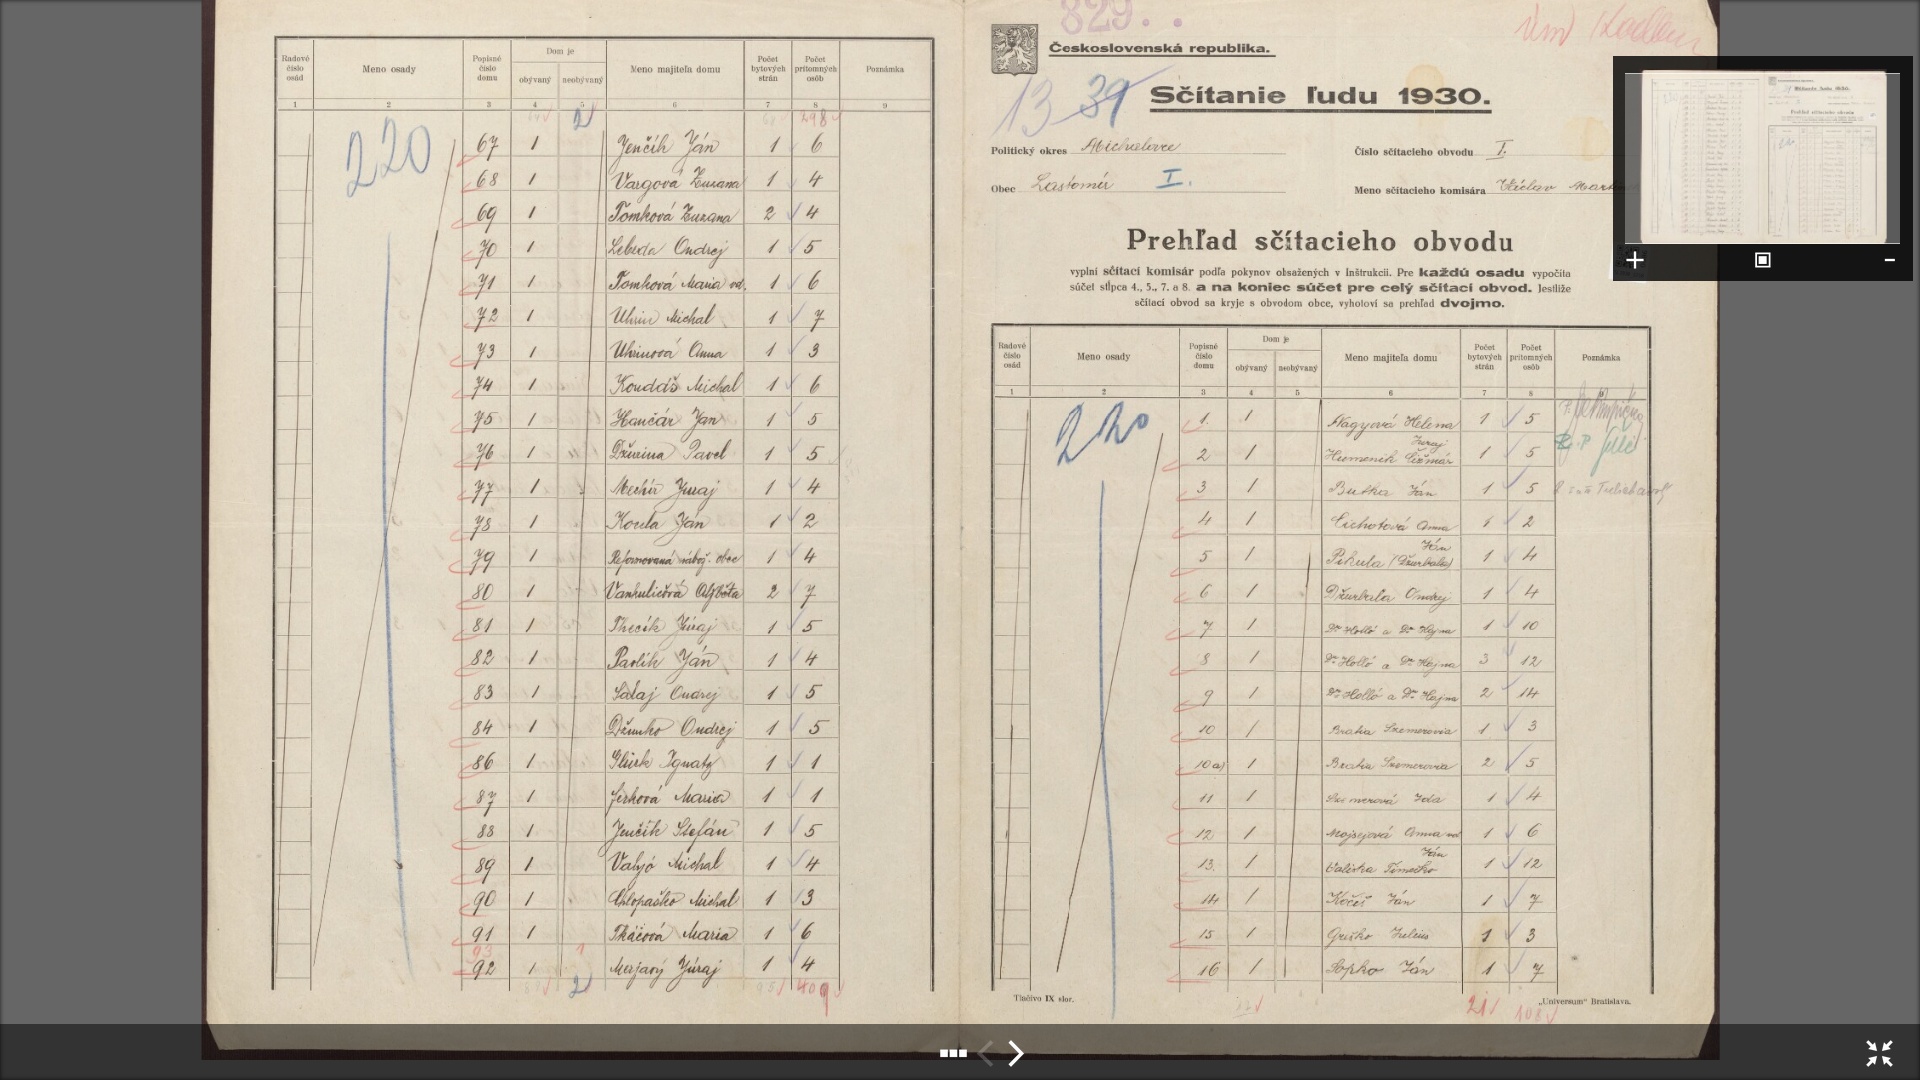 Radové číslo osád | Meno osady | Popisné číslo domu | Dom je obývaný | neobývaný | Meno majiteľa domu | Počet bytových strán | Počet prítomných osôb | Poznámka
1 | 2 | 3 | 4 | 5 | 6 | 7 | 8 | 9
220
2 298
67 1 Jenčík Ján 1 6
68 1 Vargová Zuzana 1 4
69 1 Tomková Zuzana 2 4
70 1 Lebeda Ondrej 1 5
71 1 Tomková Maria vd. 1 6
72 1 Uhrin Michal 1 7
73 1 Uhrinová Anna 1 3
74 1 Koudáš Michal 1 6
75 1 Hančár Jan 1 5
76 1 Džurina Pavel 1 5
77 1 Mechír Juraj 1 4
78 1 Koula Ján 1 2
79 1 Reformovaná nábož. obec 1 4
80 1 Vankuličová Alžběta 2 7
81 1 Juraj 1 5
82 1 Pavlík Ján 1 4
83 1 Salaj Ondrej 1 5
84 1 Džunko Ondrej 1 5
86 1 Ignatz 1 1
87 1 Maria 1 1
88 1 Jenčík Štefán 1 5
89 1 Michal 1 4
90 1 Chlopaško Michal 1 3
91 1 Tkáčová Maria 1 6
93 1
92 1 Merjavý Juraj 1 4
2 409
829.
Československá republika.
13 39
Sčítanie ľudu 1930.
Politický okres Michalovce
Číslo sčítacieho obvodu I.
Obec Lastomír I.
Meno sčítacieho komisára Václav
Prehľad sčítacieho obvodu
vyplní sčítací komisár podľa pokynov obsažených v Inštrukcii. Pre každú osadu vypočíta
súčet stĺpca 4., 5., 7. a 8. a na koniec súčet pre celý sčítací obvod. Jestliže
sčítací obvod sa kryje s obvodom obce, vyhotoví sa prehľad dvojmo.
Radové číslo osád | Meno osady | Popisné číslo domu | Dom je obývaný | neobývaný | Meno majiteľa domu | Počet bytových strán | Počet prítomných osôb | Poznámka
1 | 2 | 3 | 4 | 5 | 6 | 7 | 8 | 9
220
1. 1 Nagyová Helena 1 5
2 1 Humeník Juraj Čižmár 1 5
3 1 Butka Ján 1 5
4 1 Cichotová Anna 1 2
5 1 Pikula Ján (Džurbala) 1 4
6 1 Džurbala Ondrej 1 4
7 1 Dr. Holló a Dr. Hajna 1 10
8 1 Dr. Holló a Dr. Hajna 3 12
9 1 Dr. Holló a Dr. Hajna 2 14
10 1 Bratia Szemerovia 1 3
10a) 1 Bratia Szemerovia 2 5
11 1 Szemerová Ida 1 4
12 1 Mojsejová Anna vd 1 6
13. 1 Valiska Ján Timečko 1 12
14 1 Kočiš Ján 1 7
15 1 Griško Julius 1 3
16 1 Sopko Ján 1 7
Tlačivo IX slov.
„Universum“ Bratislava.
21 108